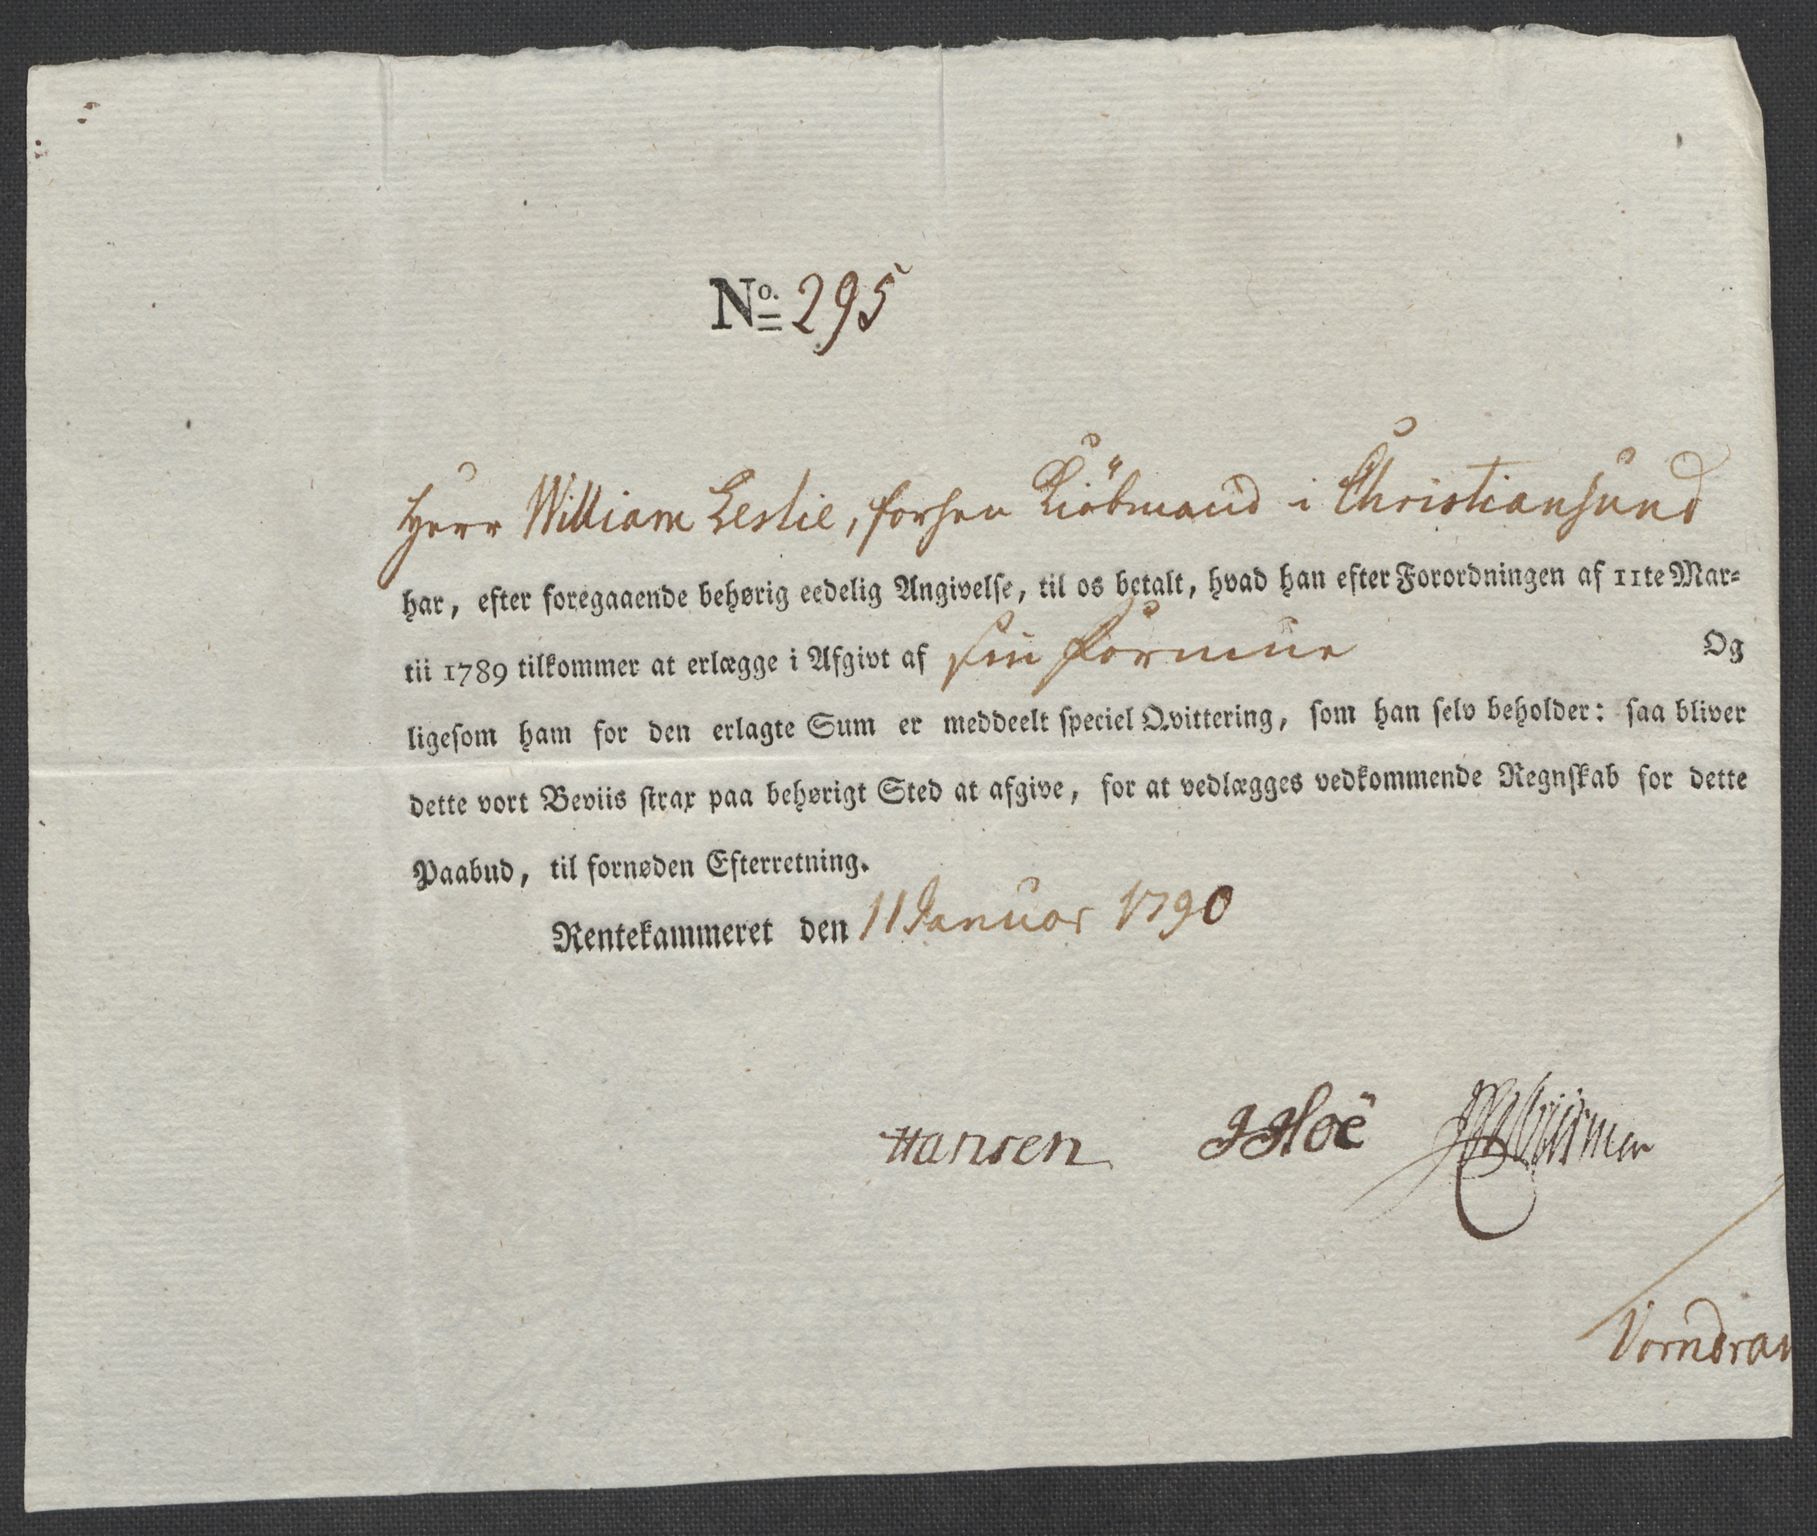 No. 295
Herr William Leslie, forhen Kiöbmand i Christiansund
har, efter foregaaende behørig eedelig Angivelse, til os betalt, hvad han efter Forordningen af 11te Mar-
tii 1789 tilkommer at erlægge i Afgivt af sin Formue Og
ligesom ham for den erlagte Sum er meddeelt speciel Qvittering, som han selv beholder: saa bliver
dette vort Beviis strax paa behørigt Sted at afgive, for at vedlægges vedkommende Regnskab for dette
Paabud, til fornøden Efterretning.
Rentekammeret den 11 Januar 1790
Hansen JHoë
Vorndran